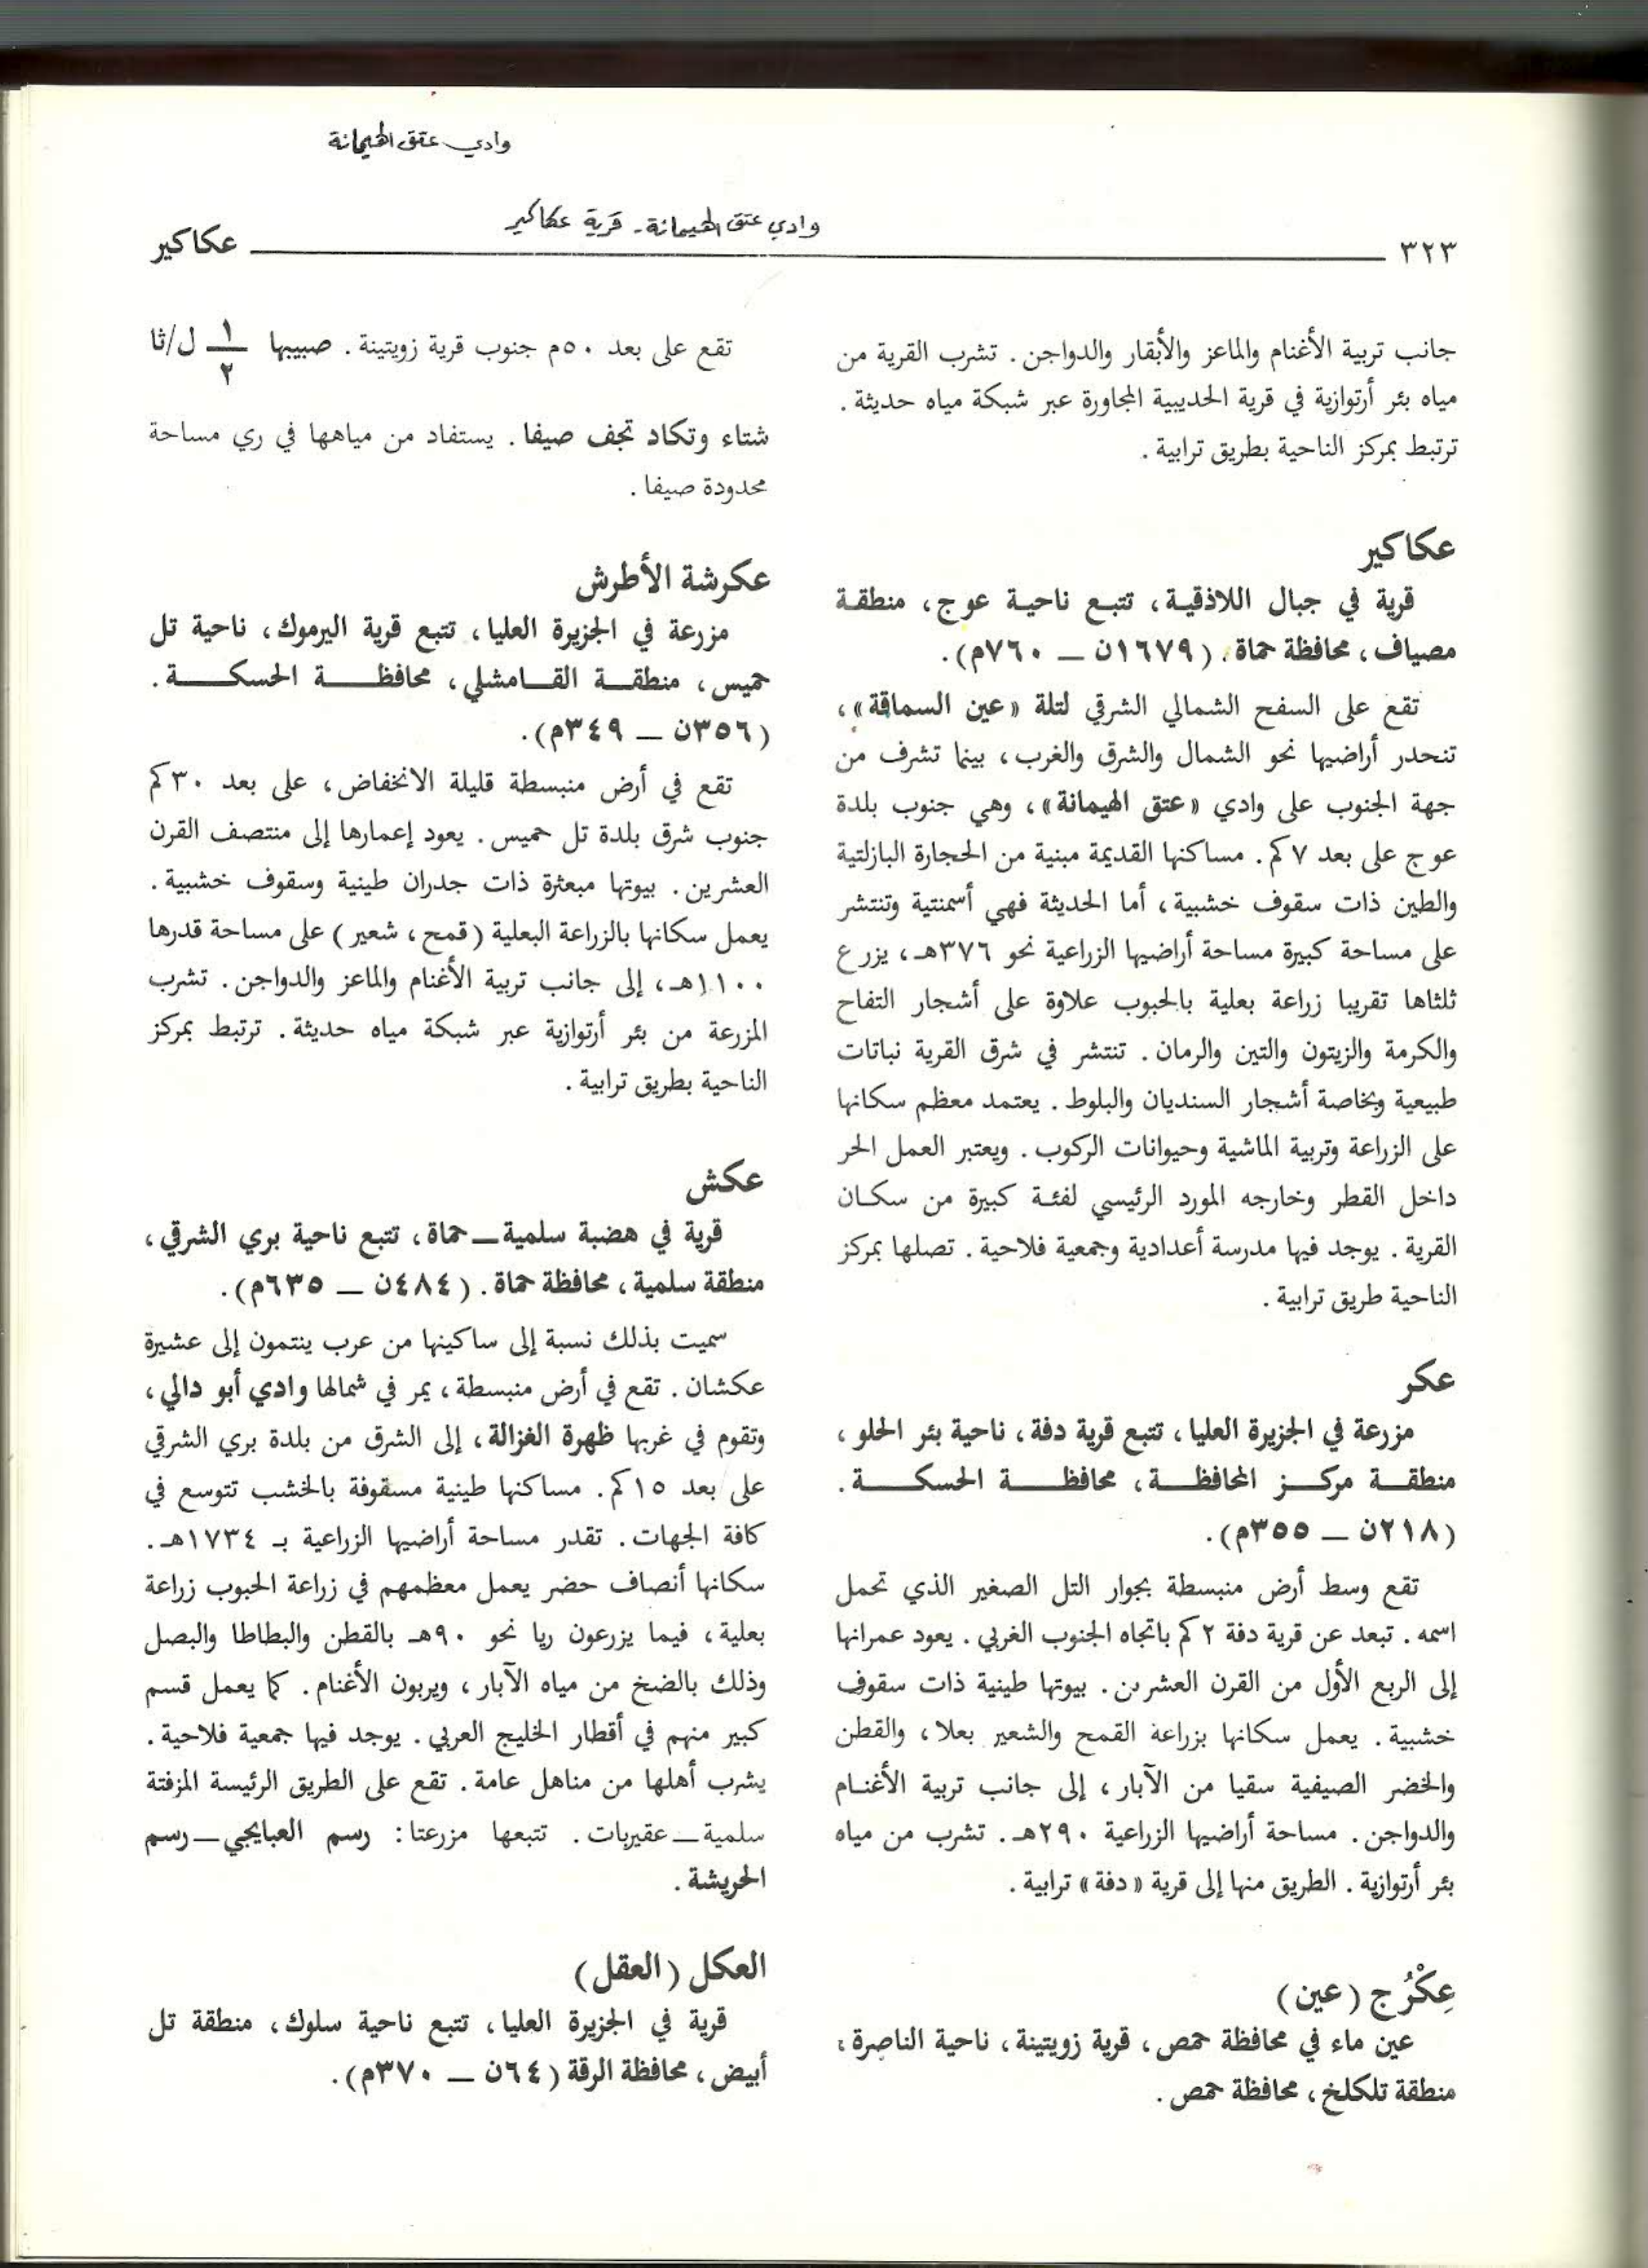 وادي عتق الهيمانة
وادي عتق الهيمانة - قرية عكاكير
٣٢٣
عكاكير
جانب تربية الأغنام والماعز والأبقار والدواجن. تشرب القرية من
مياه بئر أرتوازية في قرية الحديبية المجاورة عبر شبكة مياه حديثة.
ترتبط بمركز الناحية بطريق ترابية.
عكاكير
قرية في جبال اللاذقية، تتبع ناحية عوج، منطقة
مصياف، محافظة حماة. (١٦٧٩ن — ٧٦٠م).
تقع على السفح الشمالي الشرقي لتلة «عين السماقة»،
تنحدر أراضيها نحو الشمال والشرق والغرب، بينما تشرف من
جهة الجنوب على وادي «عتق الهيمانة»، وهي جنوب بلدة
عوج على بعد ٧كم. مساكنها القديمة مبنية من الحجارة البازلتية
والطين ذات سقوف خشبية، أما الحديثة فهي أسمنتية وتنتشر
على مساحة كبيرة مساحة أراضيها الزراعية نحو ٣٧٦هـ، يزرع
ثلثاها تقريبا زراعة بعلية بالحبوب علاوة على أشجار التفاح
والكرمة والزيتون والتين والرمان. تنتشر في شرق القرية نباتات
طبيعية وبخاصة أشجار السنديان والبلوط. يعتمد معظم سكانها
على الزراعة وتربية الماشية وحيوانات الركوب. ويعتبر العمل الحر
داخل القطر وخارجه المورد الرئيسي لفئة كبيرة من سكان
القرية. يوجد فيها مدرسة أعدادية وجمعية فلاحية. تصلها بمركز
الناحية طريق ترابية.
عكر
مزرعة في الجزيرة العليا، تتبع قرية دفة، ناحية بئر الحلو،
منطقة مركز المحافظة، محافظة الحسكة.
(٢١٨ن — ٣٥٥م).
تقع وسط أرض منبسطة بجوار التل الصغير الذي تحمل
اسمه. تبعد عن قرية دفة ٢كم باتجاه الجنوب الغربي. يعود عمرانها
إلى الربع الأول من القرن العشرين. بيوتها طينية ذات سقوف
خشبية. يعمل سكانها بزراعة القمح والشعير بعلا، والقطن
والخضر الصيفية سقيا من الآبار، إلى جانب تربية الأغنام
والدواجن. مساحة أراضيها الزراعية ٢٩٠هـ. تشرب من مياه
بئر أرتوازية. الطريق منها إلى قرية «دفة» ترابية.
عِكْرُج (عين)
عين ماء في محافظة حمص، قرية زويتينة، ناحية الناصرة،
منطقة تلكلخ، محافظة حمص.
تقع على بعد ٥٠م جنوب قرية زويتينة. صبيبها ١/٢ ل/ثا
شتاء وتكاد تجف صيفا. يستفاد من مياهها في ري مساحة
محدودة صيفا.
عكرشة الأطرش
مزرعة في الجزيرة العليا، تتبع قرية اليرموك، ناحية تل
حميس، منطقة القامشلي، محافظة الحسكة.
(٣٥٦ن — ٣٤٩م).
تقع في أرض منبسطة قليلة الانخفاض، على بعد ٣٠كم
جنوب شرق بلدة تل حميس. يعود إعمارها إلى منتصف القرن
العشرين. بيوتها مبعثرة ذات جدران طينية وسقوف خشبية.
يعمل سكانها بالزراعة البعلية (قمح، شعير) على مساحة قدرها
١١٠٠هـ، إلى جانب تربية الأغنام والماعز والدواجن. تشرب
المزرعة من بئر أرتوازية عبر شبكة مياه حديثة. ترتبط بمركز
الناحية بطريق ترابية.
عكش
قرية في هضبة سلمية — حماة، تتبع ناحية بري الشرقي،
منطقة سلمية، محافظة حماة. (٤٨٤ن — ٦٣٥م).
سميت بذلك نسبة إلى ساكينها من عرب ينتمون إلى عشيرة
عكشان. تقع في أرض منبسطة، يمر في شمالها وادي أبو دالي،
وتقوم في غربها ظهرة الغزالة، إلى الشرق من بلدة بري الشرقي
على بعد ١٥كم. مساكنها طينية مسقوفة بالخشب تتوسع في
كافة الجهات. تقدر مساحة أراضيها الزراعية بـ ١٧٣٤هـ.
سكانها أنصاف حضر يعمل معظمهم في زراعة الحبوب زراعة
بعلية، فيما يزرعون ريا نحو ٩٠هـ بالقطن والبطاطا والبصل
وذلك بالضخ من مياه الآبار، ويربون الأغنام. كما يعمل قسم
كبير منهم في أقطار الخليج العربي. يوجد فيها جمعية فلاحية.
يشرب أهلها من مناهل عامة. تقع على الطريق الرئيسة المزفتة
سلمية — عقيربات. تتبعها مزرعتا: رسم العبايجي — رسم
الحريشة.
العكل (العقل)
قرية في الجزيرة العليا، تتبع ناحية سلوك، منطقة تل
أبيض، محافظة الرقة (٦٤ن — ٣٧٠م).